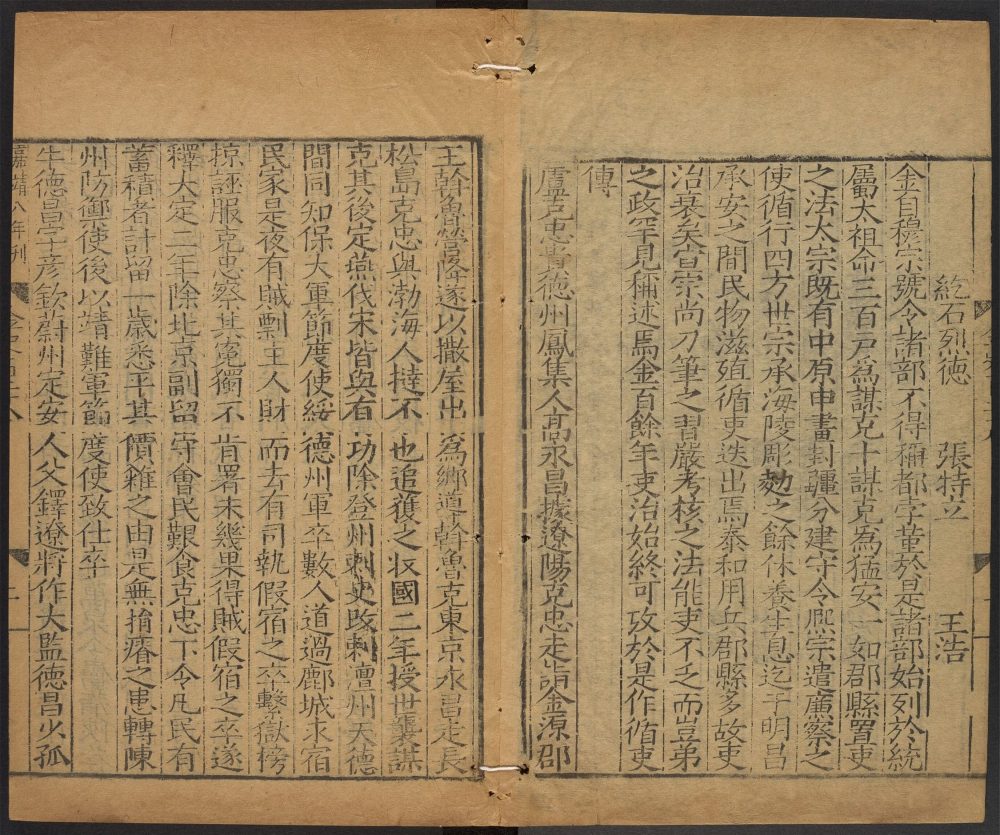 紇石烈德　張特立　王浩
金自穆宗號令諸部不得稱都孛菫於是諸部始列於統
屬太祖命三百戶爲謀克十謀克爲猛安一如郡縣置吏
之法太宗旣有中原申畫封疆分建守令熙宗遣廉察之
使循行四方世宗承海陵彫勄之餘休養生息迄于明昌
承安之間民物滋殖循吏迭出焉泰和用兵郡縣多故吏
治衰矣宣宗尚刀筆之習嚴考核之法能吏不乏而豈弟
之政罕見稱述焉金百餘年吏治始終可攷於是作循吏
傳
盧克忠貴德州鳳集人高永昌據遼陽克忠走詣金源郡
王斡魯營降遂以撒屋出爲鄉導斡魯克東京永昌走長
松島克忠與渤海人撻不也追獲之收國二年授世襲謀
克其後定燕伐宋皆與有功除登州刺史改刺澶州天德
間同知保大軍節度使綏德州軍卒數人道過鄜城求宿
民家是夜有賊剽主人財而去有司執假宿之卒繫獄榜
掠誣服克忠察其寃獨不肯署未幾果得賊假宿之卒遂
釋大定二年除北京副留守會民艱食克忠下令凡民有
蓄積者計留一歲悉平其價糴之由是無捐瘠之患轉陳
州防禦使後以靖難軍節度使致仕卒
牛德昌字彥欽蔚州定安人父鐸遼將作大監德昌少孤
嘉靖八年刊